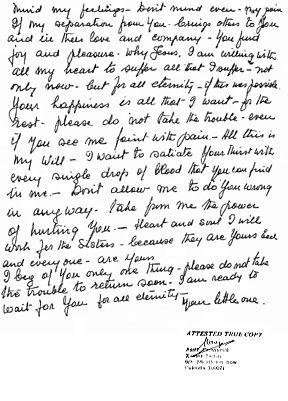 mind my feelings - Don't mind even - my pain
If my separation from You - brings others to You
and in their love and company - You find
joy and pleasure - why Jesus, I am willing with
all my heart to suffer all that I suffer - not
only now - but for all eternity - if this was possible.
Your happiness is all that I want - for the
rest - please do not take the trouble - even
if You see me faint with pain. - All this is
my will - I want to satiate Your thirst with
every single drop of blood that You can find
in me. - Don't allow me to do You wrong
in any way - take from me the power
of hurting You. - Heart and soul I will
work for the Sisters - because they are Yours. Each
and everyone - are Yours
I beg of You only one thing - please do not take
the trouble to return soon. - I am ready to
wait for You for all eternity. -
Your little one.
ATTESTED TRUE COPY